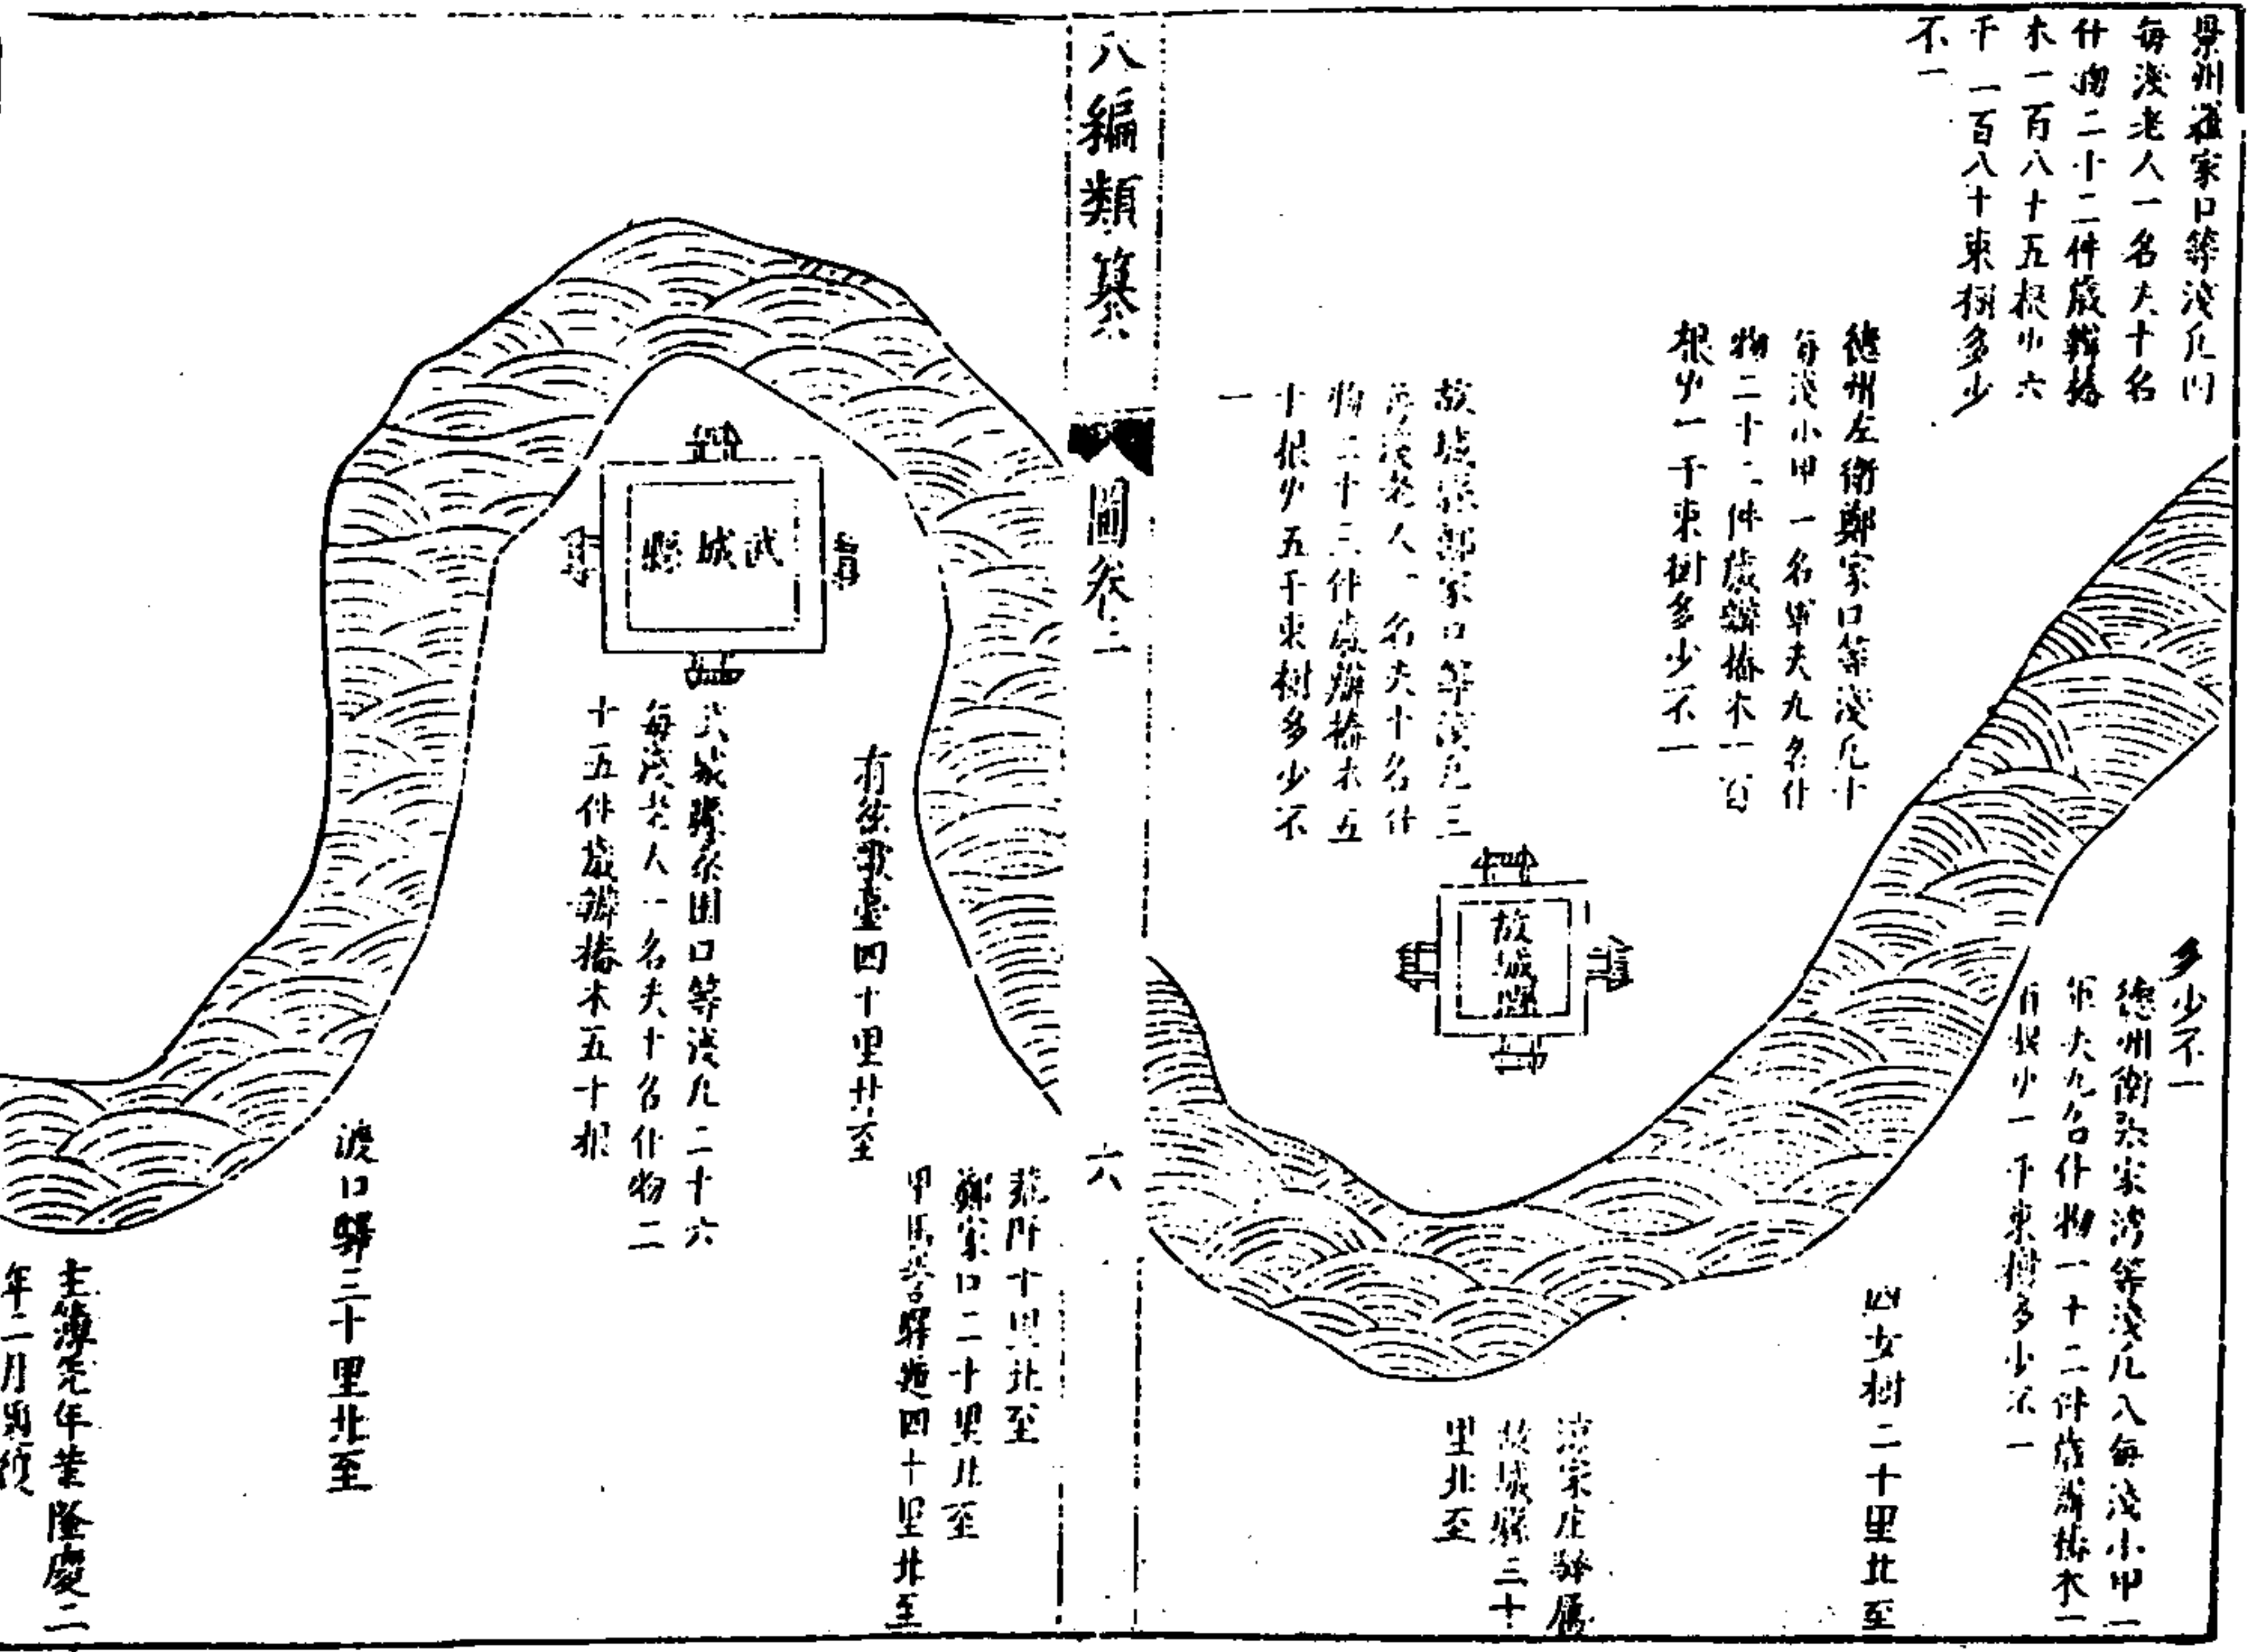 景州羅家口等淺凡四
每淺老人一名夫十名
什物二十二件歲辦樁
木一百八十五根少六
千一百八十束樹多少
不一
德州左衛鄭家口等淺凡十
每淺小甲一名軍夫九名什
物二十二件歲辦樁木一百
根少一千束樹多少不一
故城縣鄭家口等淺凡三
每淺老人一名夫十名什
物二十三件歲辦樁木五
十根少五千束樹多少不
一
故城縣
多少不一
德州衛家灣等淺凡八每淺小甲一
軍夫九名什物一十二件歲辦樁木一
百根少一千束樹多少不一
四女樹二十里北至
家庄驛屬
故城縣三十
里北至
八編類纂
圖卷三
六
所十里北至
鄭家口二十里北至
甲馬營驛遞四十里北至
有絃歌臺四十里北至
武城縣
武城縣桑園口等淺凡二十六
每淺老人一名夫十名什物二
十五件歲辦樁木五十根
渡口驛三十里北至
主簿先年革隆慶二
年二月復